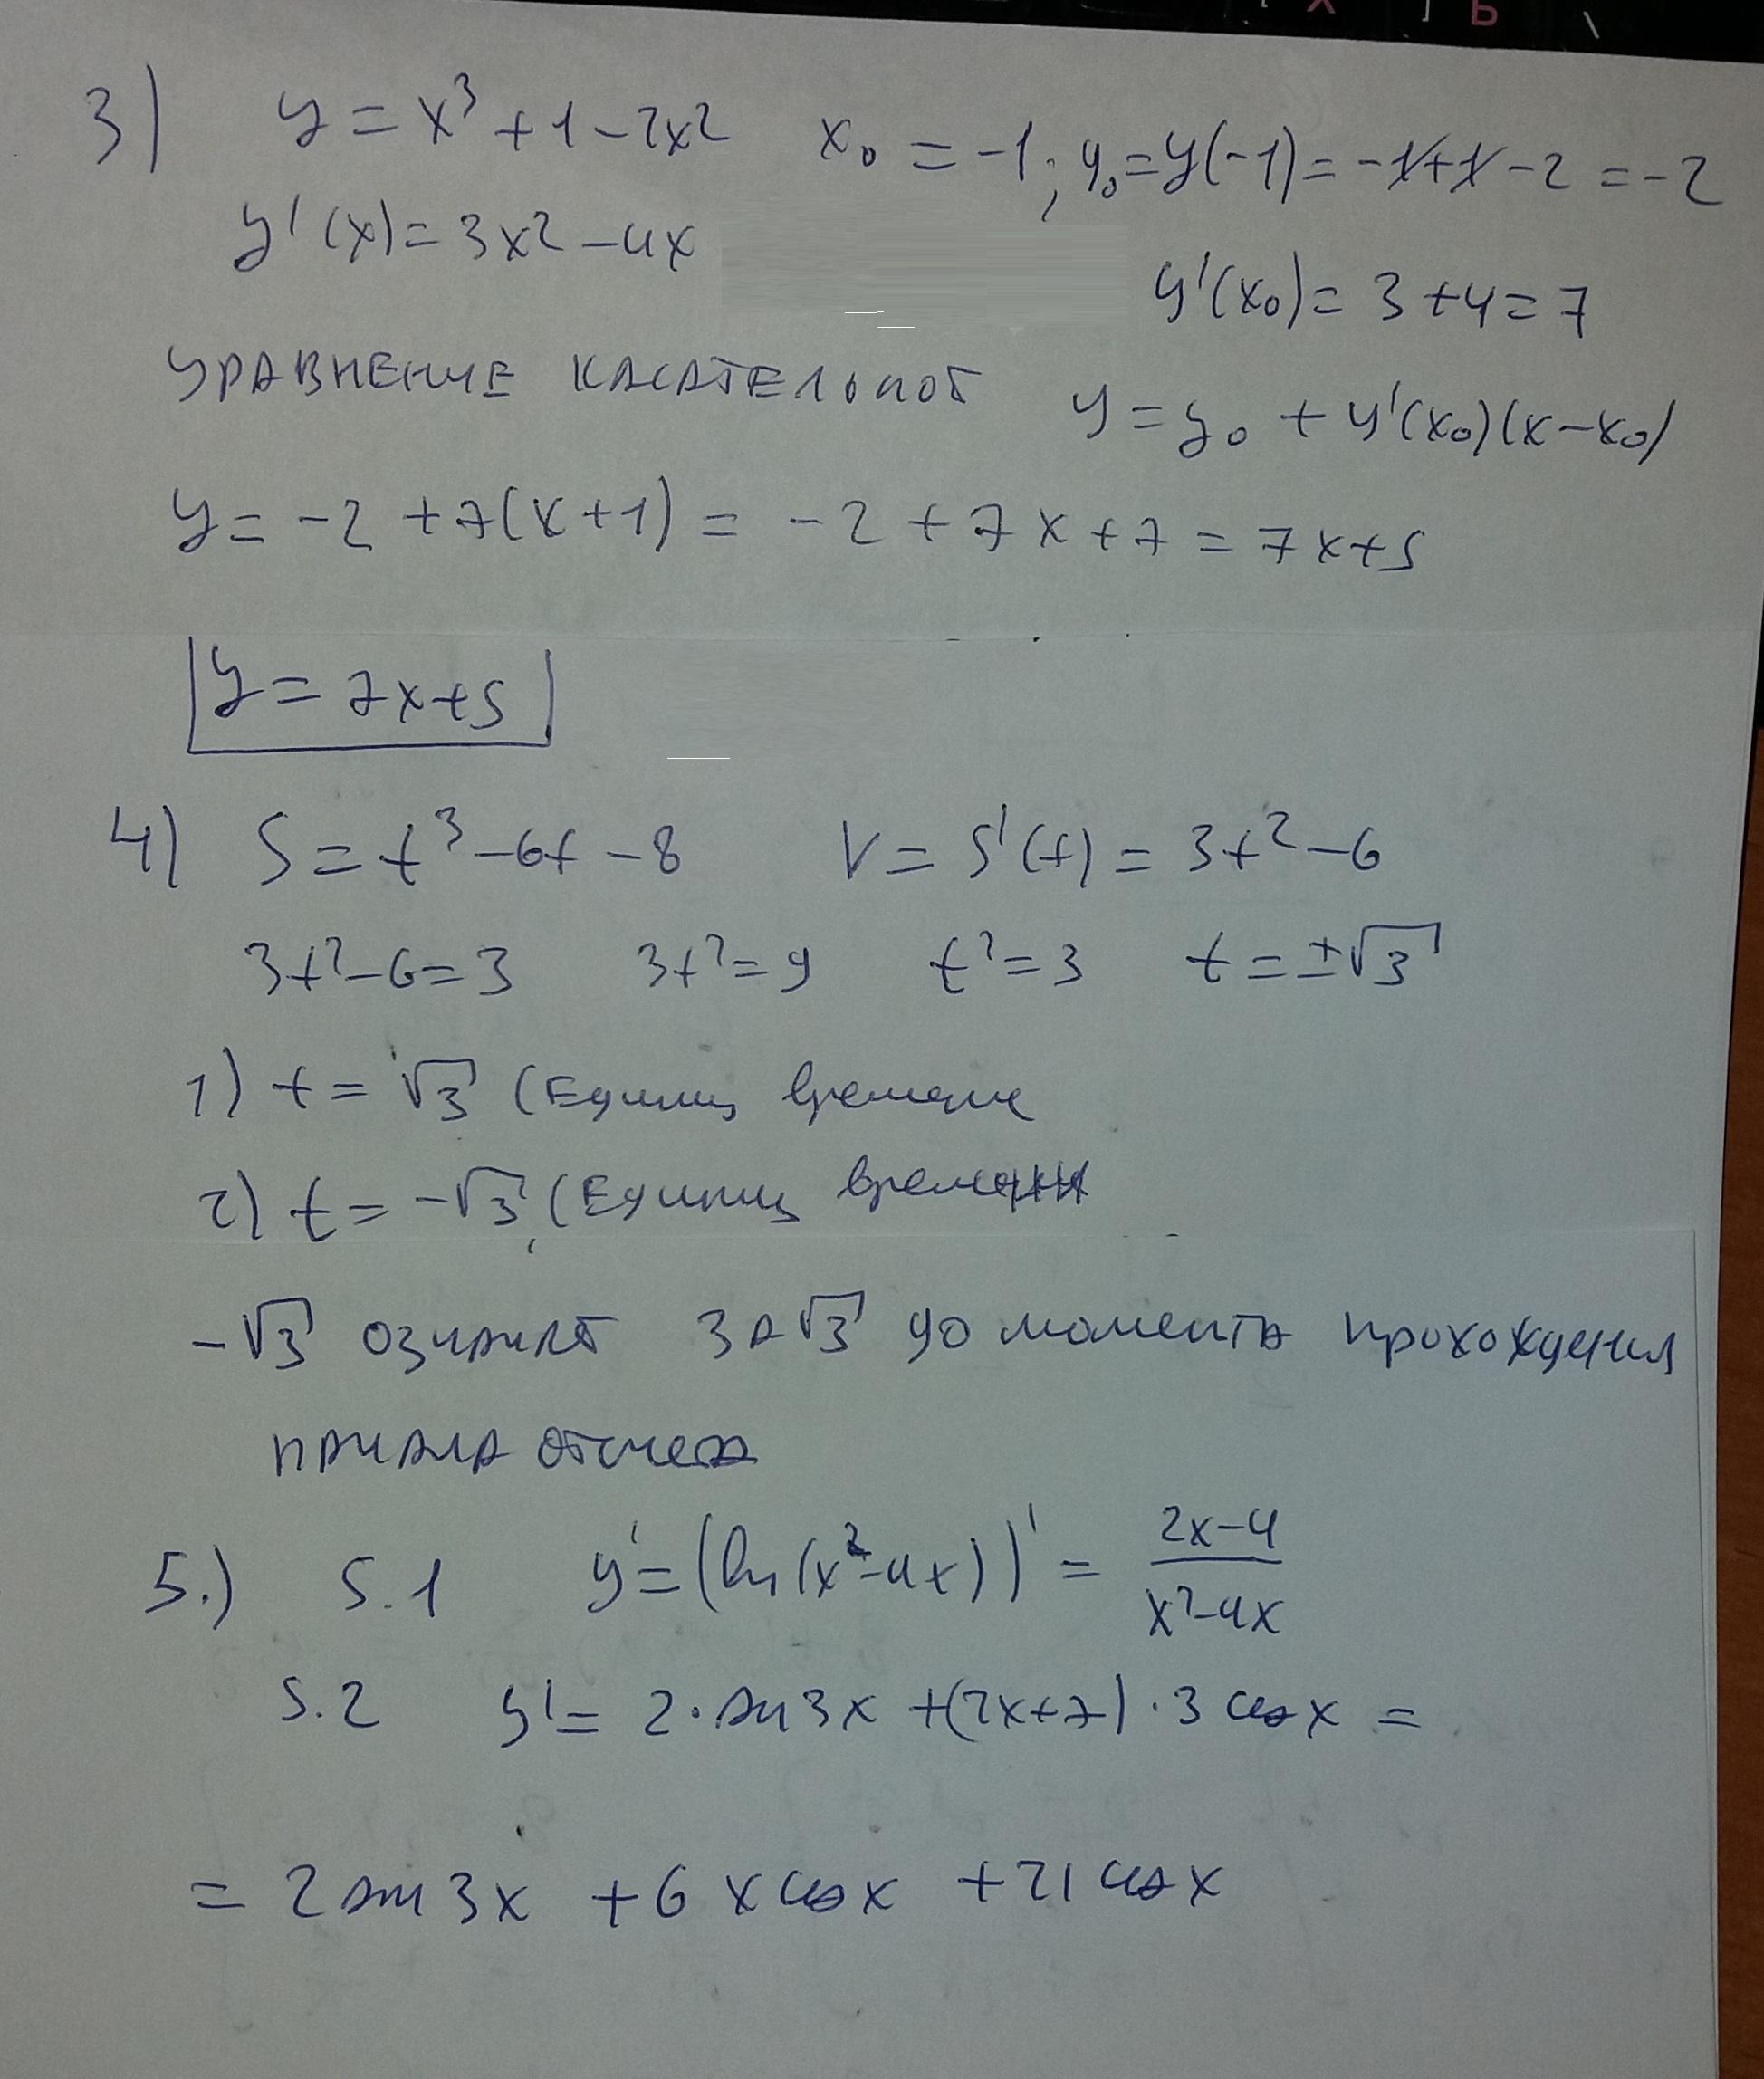 [ Х ] Ь \
3) y = x³ + 1 − 2x² x₀ = −1; y₀ = y(−1) = −1 + 1 − 2 = −2
y'(x) = 3x² − 4x
y'(x₀) = 3 + 4 = 7
УРАВНЕНИЕ КАСАТЕЛЬНОЙ y = y₀ + y'(x₀)(x − x₀)
y = −2 + 7(x + 1) = −2 + 7x + 7 = 7x + 5
y = 7x + 5
4) S = t³ − 6t − 8 V = S'(t) = 3t² − 6
3t² − 6 = 3 3t² = 9 t² = 3 t = ±√3
1) t = √3 (Единиц времени
2) t = −√3 (Единиц времени
−√3 означает за √3 до момента прохождения
начала отсчета
5.) 5.1 y' = (ln(x² − 4x))' = (2x − 4)/(x² − 4x)
5.2 y' = 2 · sin 3x + (2x + 7) · 3 cos x =
= 2 sin 3x + 6 x cos x + 21 cos x